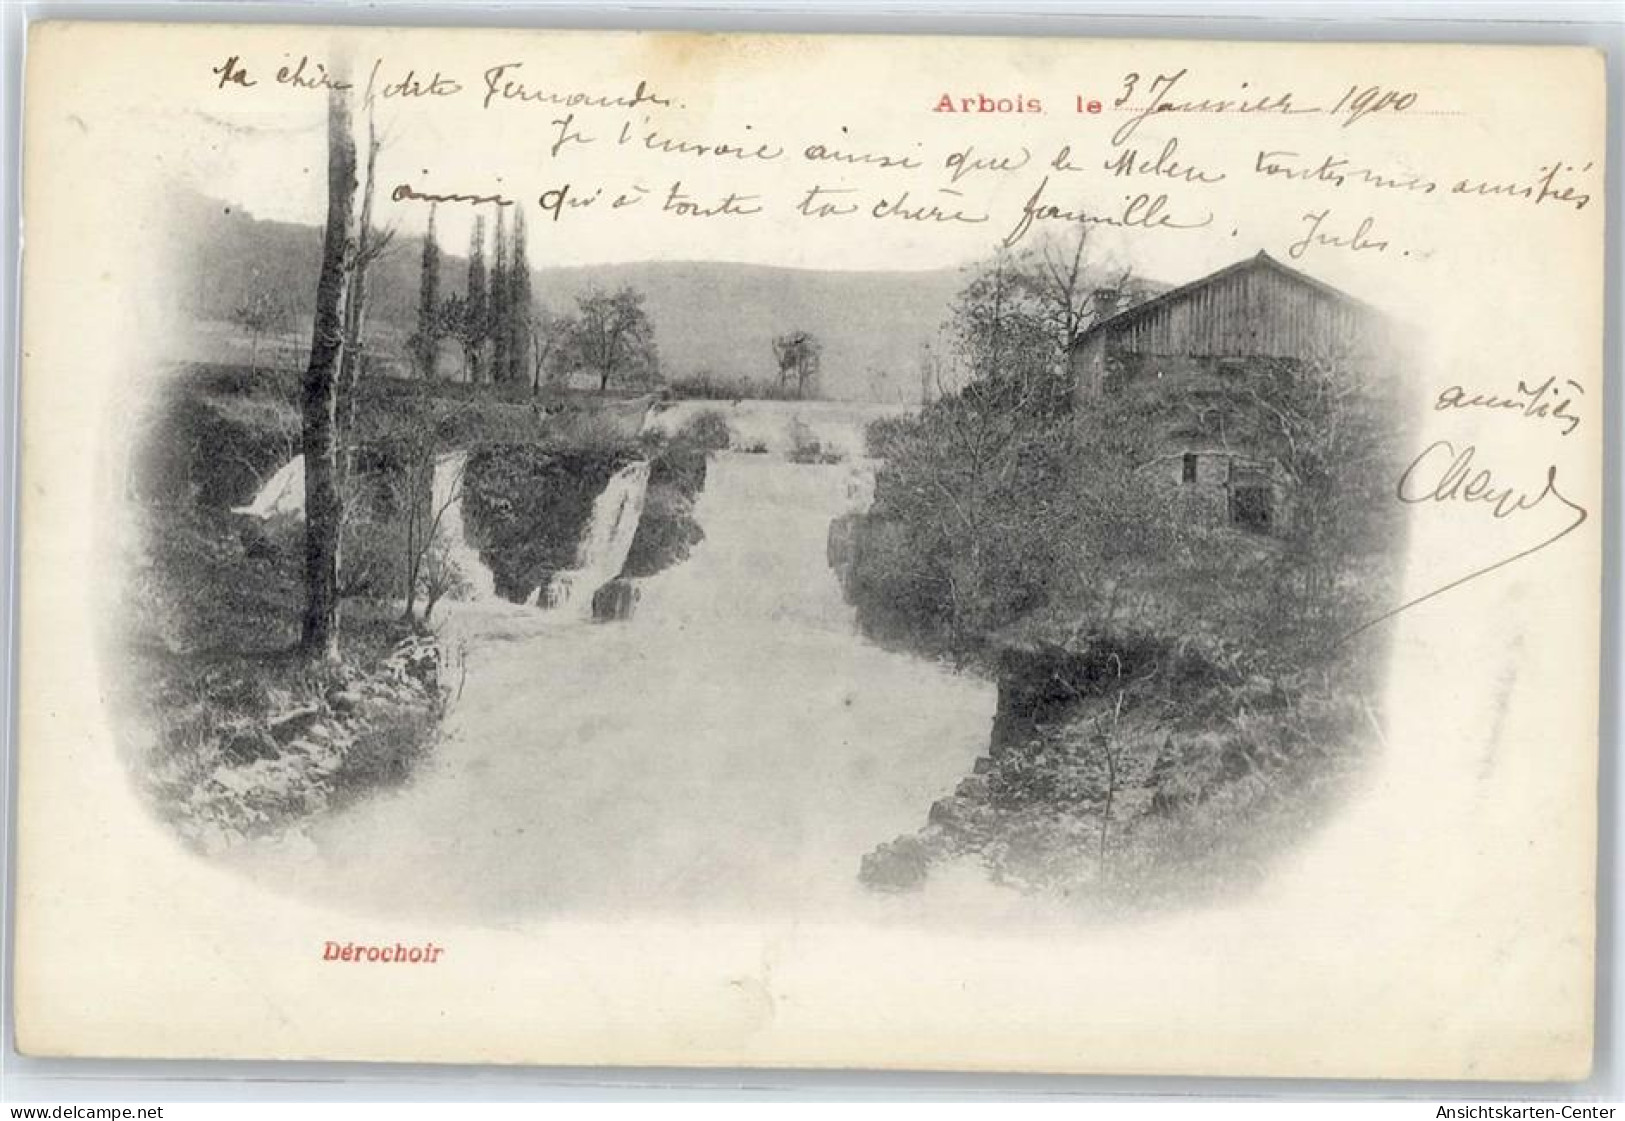 Ma chère petite Fernande.
Arbois, le 3 Janvier 1900
Je t'envoie ainsi que de toutes mes amitiés
ainsi qu'à toute ta chère famille. Jules.
amitiés
Dérochoir
www.delcampe.net
Ansichtskarten-Center